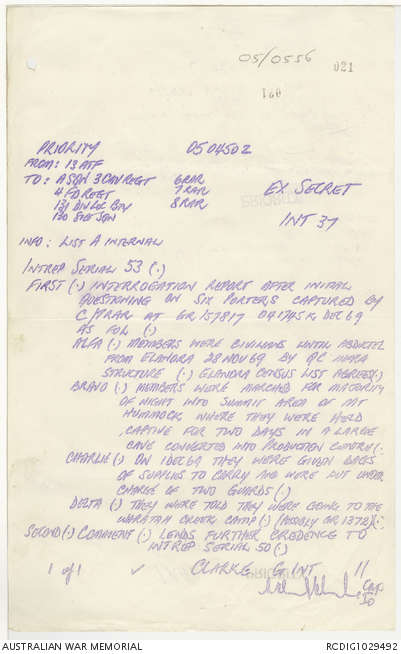 05/0556
021
160
PRIORITY 050450Z
FROM: 1 ATF
TO: A SQN 3 CAV REGT 6 RAR
4 FD REGT 7 RAR
131 DIV LOC BTY 8 RAR
EX SECRET
INT 37
INFO: LIST A INTERNAL
INTREP SERIAL 53 (.)
FIRST (.) INTERROGATION REPORT AFTER INITIAL
QUESTIONING ON SIX PORTERS CAPTURED BY
AT GR 157817 041745K DEC 69
AS FOL (.)
ALFA (.) MEMBERS WERE CIVILIANS UNTIL ABDUCTED
FROM ELANORA 28 NOV 69 BY
STRUCTURE (.) ELANORA CENSUS LIST AGREES (.)
BRAVO (.) MEMBERS WERE MARCHED FOR MAJORITY
OF NIGHT INTO SUMMIT AREA OF MT
HUMMOCK WHERE THEY WERE HELD
CAPTIVE FOR TWO DAYS IN A LARGE
CAVE CONVERTED INTO PRODUCTION CENTRE (.)
CHARLIE (.) ON 1 DEC 69 THEY WERE GIVEN BAGS
OF SUPPLIES TO CARRY AND WERE PUT UNDER
CHARGE OF TWO GUARDS (.)
DELTA (.) THEY WERE TOLD THEY WERE GOING TO THE
WARATAH CREEK CAMP (.) (POSSIBLY GR 1372) (.)
SECOND (.) COMMENT (.) LENDS FURTHER CREDENCE TO
INTREP SERIAL 50 (.)
1 of 1 CLARKE G INT 11
Capt
IO
AUSTRALIAN WAR MEMORIAL RCDIG1029492